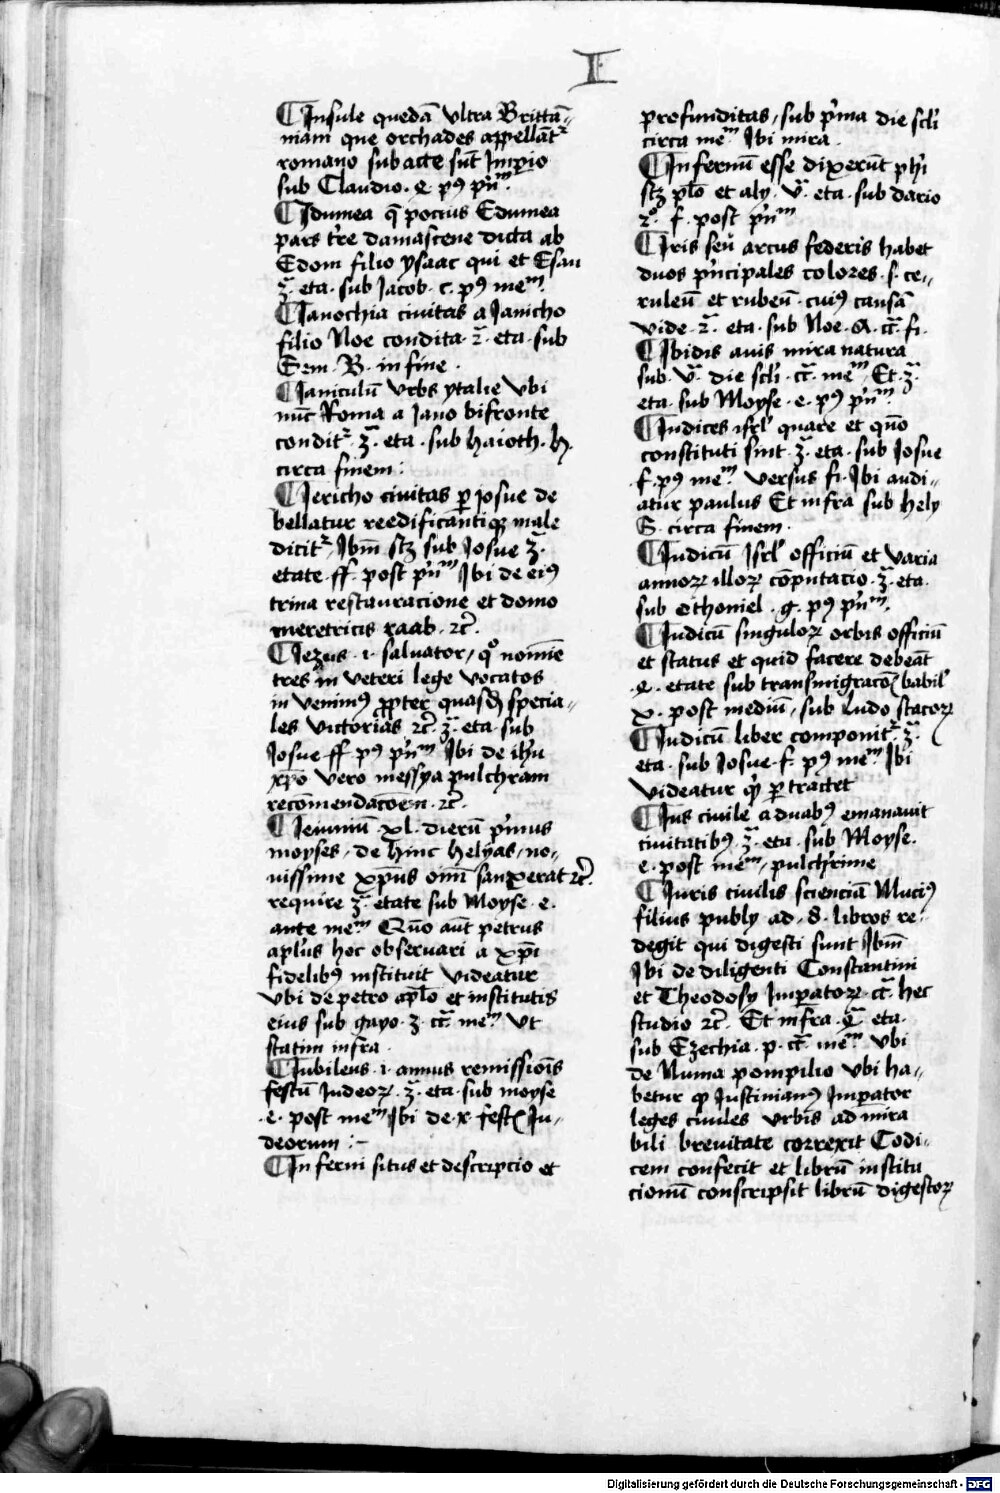 I
¶ Insule quedā ultra Brittā-
niam que orchades appellāt᷑
romano subacte sūt Imꝑio
sub Claudio · e · pꝰ pn̄ᵐ ·
¶ Idumea q̄ pocius Edumea
pars t're damascene dicta ab
Edom filio ysaac qui et Esau
3ᵃ · eta · sub Iacob · c · pꝰ meᵐ ·
¶ Ianochia civitas a Ianicho
filio Noe condita · 2ᵃ · eta · sub
Sem · B · in fine ·
¶ Ianiculū urbs ytalie ubi
nūc Roma a Iano bifronte
condit᷑ · 3ᵃ · eta · sub haioth · h ·
circa finem :
¶ Iericho civitas ꝑ josue de
bellatur reedificantiqꝫ male
dicit᷑, Ibm̄ scꝫ sub Iosue 3ᵃ ·
etate · ff · post pn̄ᵐ Ibi de eiꝰ
trina restauracione et domo
meretricis raab · ⁊c̄ ·
¶ Iezus · i · salvator, qͦ nomīe
tres in veteri lege vocatos
in venimꝰ ꝓpter quasdā specia-
les victorias ⁊c̄ · 3ᵃ · eta · sub
Iosue · ff · pꝰ pn̄ᵐ Ibi de ih'u
xp̄o vero messya pulchram
recōmendacōem · ⁊c̄ ·
¶ Ieiuniū · xl · dierū p'mus
moyses, de hinc helyas, no-
uissime xpus om̄i sanxerat ⁊c̄ ·
require 3ᵃ · etate sub Moyse · e ·
ante meᵐ Quō aūt petrus
apl'us hoc observari a xp̄i
fidelibꝰ instituit videatur
ubi de petro apl̄o et institutis
eius sub gayo · 3 · cc̄ᵃ · meᵐ · ut
statim infra ·
¶ Iubileus · i · annus remissiōis
festū Iudeoꝝ · 3ᵃ · eta · sub moyse
· e · post meᵐ Ibi de · x · fest Iu-
deorum : -
¶ Inferni situs et descripcio et
profunditas, sub p'ma die scl'i
circa meᵐ Ibi mira ·
¶ Infernū esse dixerūt ph'i
scꝫ pl̄o et aly · vᵃ · eta · sub dario
2ͦ · f · post pn̄ᵐ
¶ Iris seu arcus federis habet
duos p'ncipales colores · s · ce-
ruleū et rubeū · cuiꝰ causā
vide · 2ᵃ · eta · sub Noe · a · cc̄ᵃ · fi ·
¶ Ibidis avis mira natura
sub · vᵃ · die scl'i · cc̄ᵃ · meᵐ Et · 3ᵃ ·
eta · sub Moyse · e · pꝰ pn̄ᵐ ·
¶ Iudices isrl' quare et quō
constituti sint · 3ᵃ · eta · sub Iosue
· f · pꝰ meᵐ · versus fi · Ibi audi-
atur paulus Et infra sub hely
G · circa finem ·
¶ Iudicū Isrl' officiū et varia
annoꝝ illoꝝ cōputacio · 3ᵃ · eta ·
sub othoniel · g · pꝰ pn̄ᵐ ·
¶ Iudicū singuloꝝ orbis officiū
et status et quid facere debeāt
· e · etate sub transmigracōe babil'
x · post mediū, sub ludo scacoꝝ
¶ Iudicū liber componit᷑ · 3ᵃ ·
eta · sub Iosue · f · pꝰ meᵐ Ibi
videatur qͥ ꝑ tractet
¶ Ius civile a duabꝰ emanavit
civitatibꝰ · 3ᵃ · eta · sub Moyse ·
e · post meᵐ, pulchrime
¶ Iuris civilis scienciā Muciꝰ
filius publy ad · 8 · libros re-
degit qui digesti sunt Ibm̄
Ibi de diligenti Constantini
et Theodosy Imꝑatoꝝ · cc̄ᵃ · hec
studio ⁊c̄ · Et infra · eta ·
sub Ezechia · p · cc̄ᵃ · meᵐ · ubi
de Numa pompilio ubi ha-
betur qͩ Iustinianꝰ Imꝑator
leges civiles urbis ad mira
bili brevitate correxit Codi-
cem confecit et librū institu
cionū conscripsit librū digestoꝝ
Digitalisierung gefördert durch die Deutsche Forschungsgemeinschaft - DFG